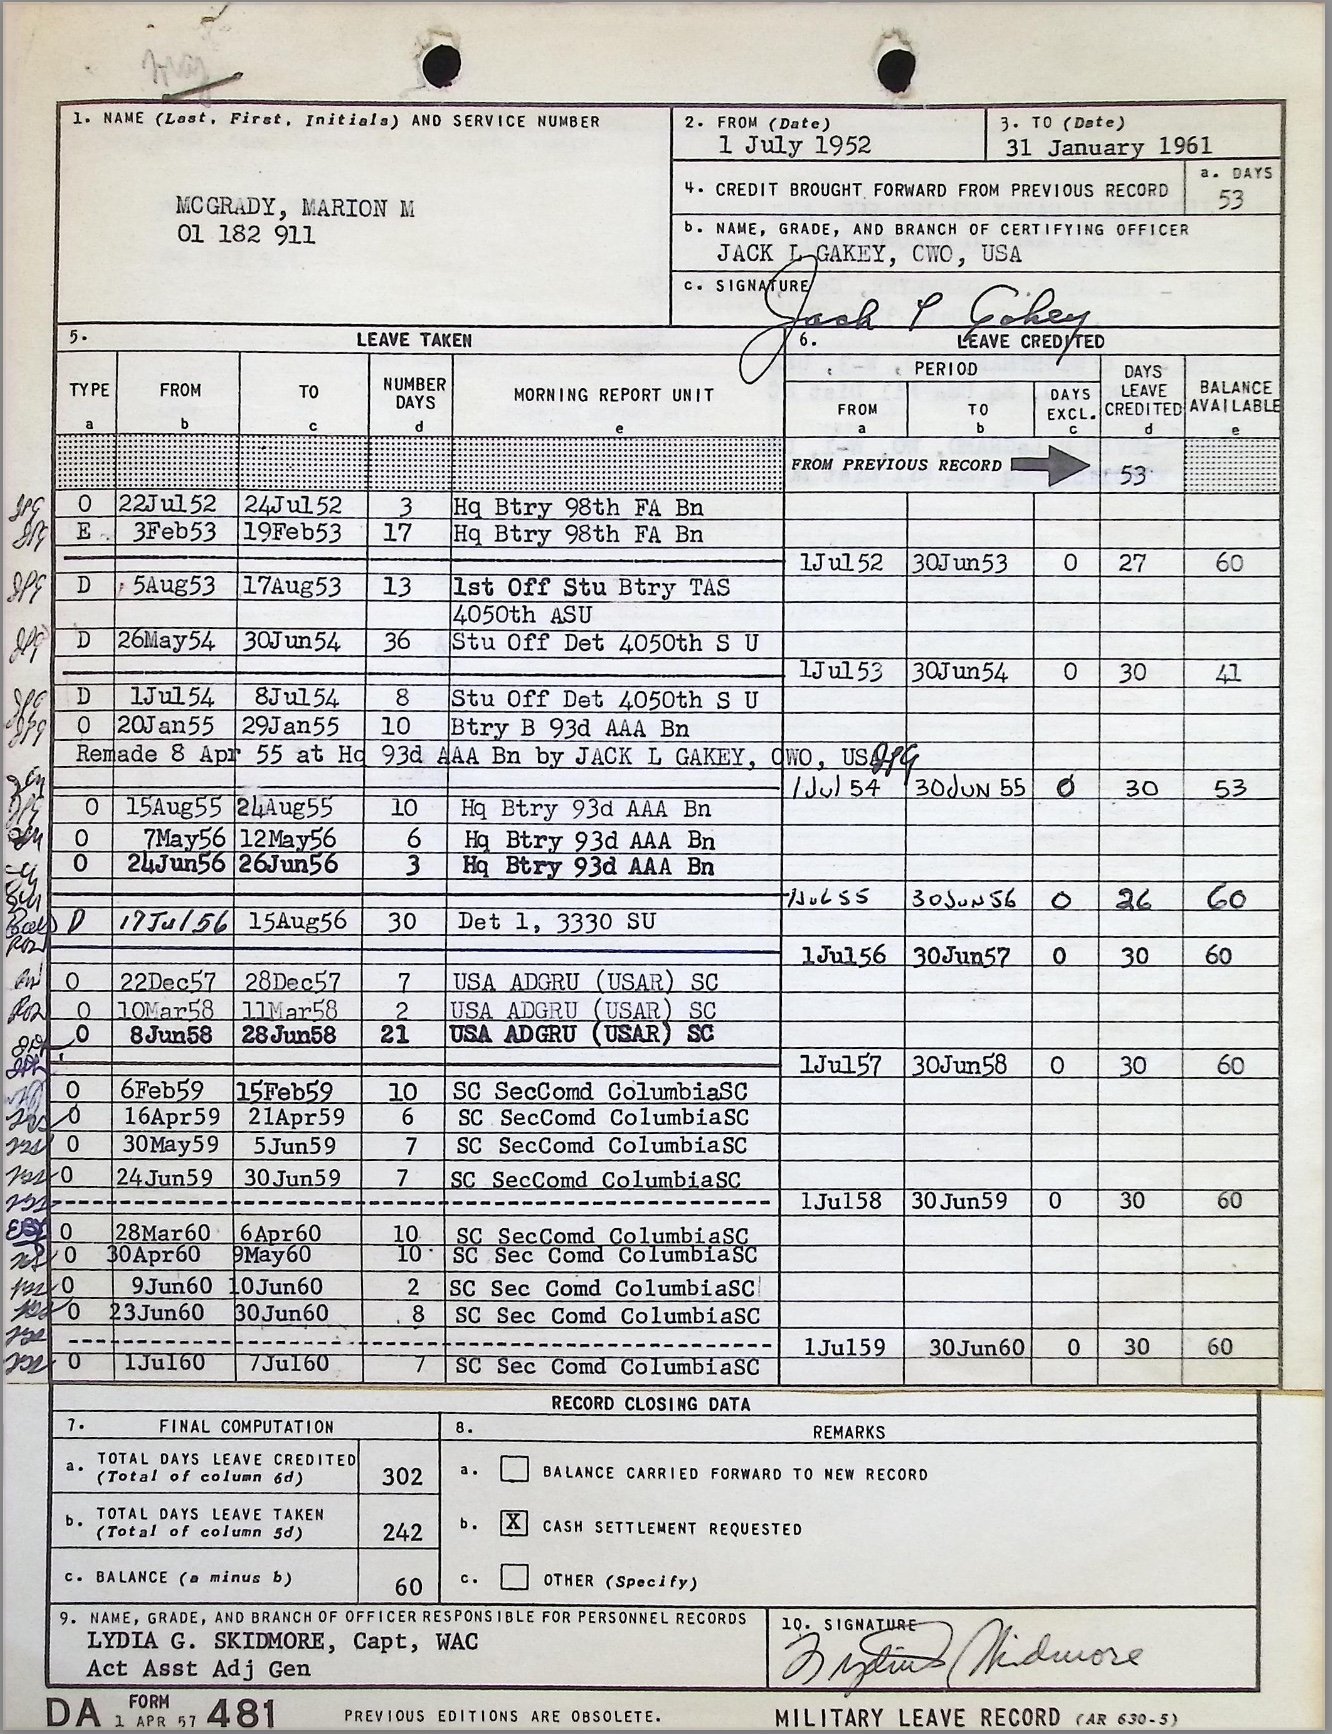 1. NAME (Last, First, Initials) AND SERVICE NUMBER
MCGRADY, MARION M
01 182 911
2. FROM (Date)
1 July 1952
3. TO (Date)
31 January 1961
4. CREDIT BROUGHT FORWARD FROM PREVIOUS RECORD
a. DAYS
53
b. NAME, GRADE, AND BRANCH OF CERTIFYING OFFICER
JACK L GAKEY, CWO, USA
c. SIGNATURE
5. LEAVE TAKEN
6. LEAVE CREDITED
TYPE FROM TO NUMBER DAYS MORNING REPORT UNIT
a b c d e
PERIOD
FROM TO DAYS EXCL. DAYS LEAVE CREDITED BALANCE AVAILABLE
a b c d e
FROM PREVIOUS RECORD 53
O 22Jul52 24Jul52 3 Hq Btry 98th FA Bn
E 3Feb53 19Feb53 17 Hq Btry 98th FA Bn
1Jul52 30Jun53 0 27 60
D 5Aug53 17Aug53 13 1st Off Stu Btry TAS
4050th ASU
D 26May54 30Jun54 36 Stu Off Det 4050th S U
1Jul53 30Jun54 0 30 41
D 1Jul54 8Jul54 8 Stu Off Det 4050th S U
O 20Jan55 29Jan55 10 Btry B 93d AAA Bn
Remade 8 Apr 55 at Hq 93d AAA Bn by JACK L GAKEY, CWO, USA
1Jul54 30JUN55 0 30 53
O 15Aug55 24Aug55 10 Hq Btry 93d AAA Bn
O 7May56 12May56 6 Hq Btry 93d AAA Bn
O 24Jun56 26Jun56 3 Hq Btry 93d AAA Bn
1Jul55 30JUN56 0 26 60
D 17Jul56 15Aug56 30 Det 1, 3330 SU
1Jul56 30Jun57 0 30 60
O 22Dec57 28Dec57 7 USA ADGRU (USAR) SC
O 10Mar58 11Mar58 2 USA ADGRU (USAR) SC
O 8Jun58 28Jun58 21 USA ADGRU (USAR) SC
1Jul57 30Jun58 0 30 60
O 6Feb59 15Feb59 10 SC SecComd ColumbiaSC
O 16Apr59 21Apr59 6 SC SecComd ColumbiaSC
O 30May59 5Jun59 7 SC SecComd ColumbiaSC
O 24Jun59 30Jun59 7 SC SecComd ColumbiaSC
1Jul58 30Jun59 0 30 60
O 28Mar60 6Apr60 10 SC SecComd ColumbiaSC
O 30Apr60 9May60 10 SC Sec Comd ColumbiaSC
O 9Jun60 10Jun60 2 SC Sec Comd ColumbiaSC
O 23Jun60 30Jun60 8 SC Sec Comd ColumbiaSC
1Jul59 30Jun60 0 30 60
O 1Jul60 7Jul60 7 SC Sec Comd ColumbiaSC
RECORD CLOSING DATA
7. FINAL COMPUTATION
8. REMARKS
a. TOTAL DAYS LEAVE CREDITED
(Total of column 6d)
302
b. TOTAL DAYS LEAVE TAKEN
(Total of column 5d)
242
c. BALANCE (a minus b)
60
a. BALANCE CARRIED FORWARD TO NEW RECORD
b. X CASH SETTLEMENT REQUESTED
c. OTHER (Specify)
9. NAME, GRADE, AND BRANCH OF OFFICER RESPONSIBLE FOR PERSONNEL RECORDS
LYDIA G. SKIDMORE, Capt, WAC
Act Asst Adj Gen
10. SIGNATURE
DA FORM 1 APR 57 481
PREVIOUS EDITIONS ARE OBSOLETE.
MILITARY LEAVE RECORD (AR 630-5)